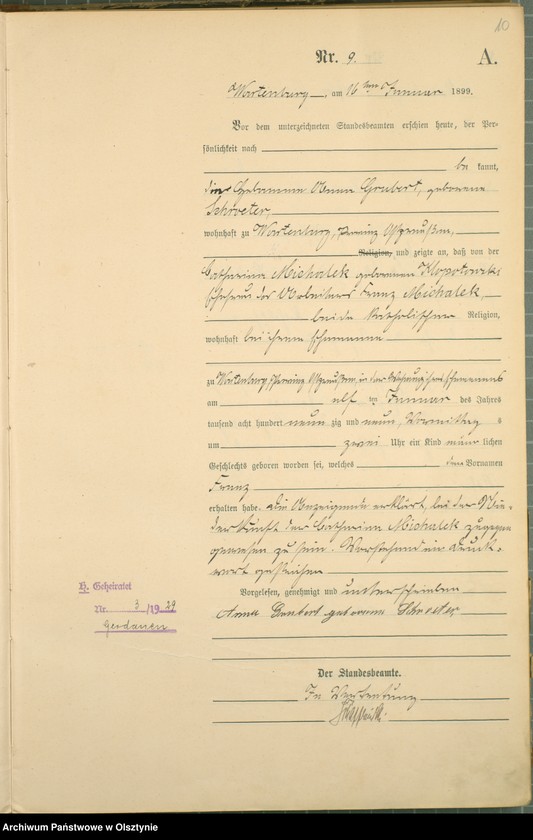 10
Nr. 9.
A.
Wartenburg, am 16 ten Januar 1899.
Vor dem unterzeichneten Standesbeamten erschien heute, der Per-
sönlichkeit nach
be kannt,
die Hebamme Anna Grubert, geborene
Schroeter,
wohnhaft zu Wartenburg, Provinz Ostpreußen,
Religion, und zeigte an, daß von der
Catharina Michalek geborenen Klopotowski
Ehefrau des Arbeiters Franz Michalek,
beide katholischer Religion,
wohnhaft bei ihrem Ehemanne
zu Wartenburg, Provinz Ostpreußen, in der Wohnung ihres Ehemannes
am elf ten Januar des Jahres
tausend acht hundert neun zig und neun, Vormittag s
um zwei Uhr ein Kind männ lichen
Geschlechts geboren worden sei, welches den Vornamen
Franz
erhalten habe. Die Anzeigende erklärt, bei der Nie-
derkunft der Catharina Michalek zugegen
gewesen zu sein. Vorstehend ein Druck-
wort gestrichen
Vorgelesen, genehmigt und unterschrieben
Anna Grubert geborene Schroeter
Der Standesbeamte.
In Vertretung
H. Geheiratet
Nr. 3/1929
Gerdauen
Archiwum Państwowe w Olsztynie